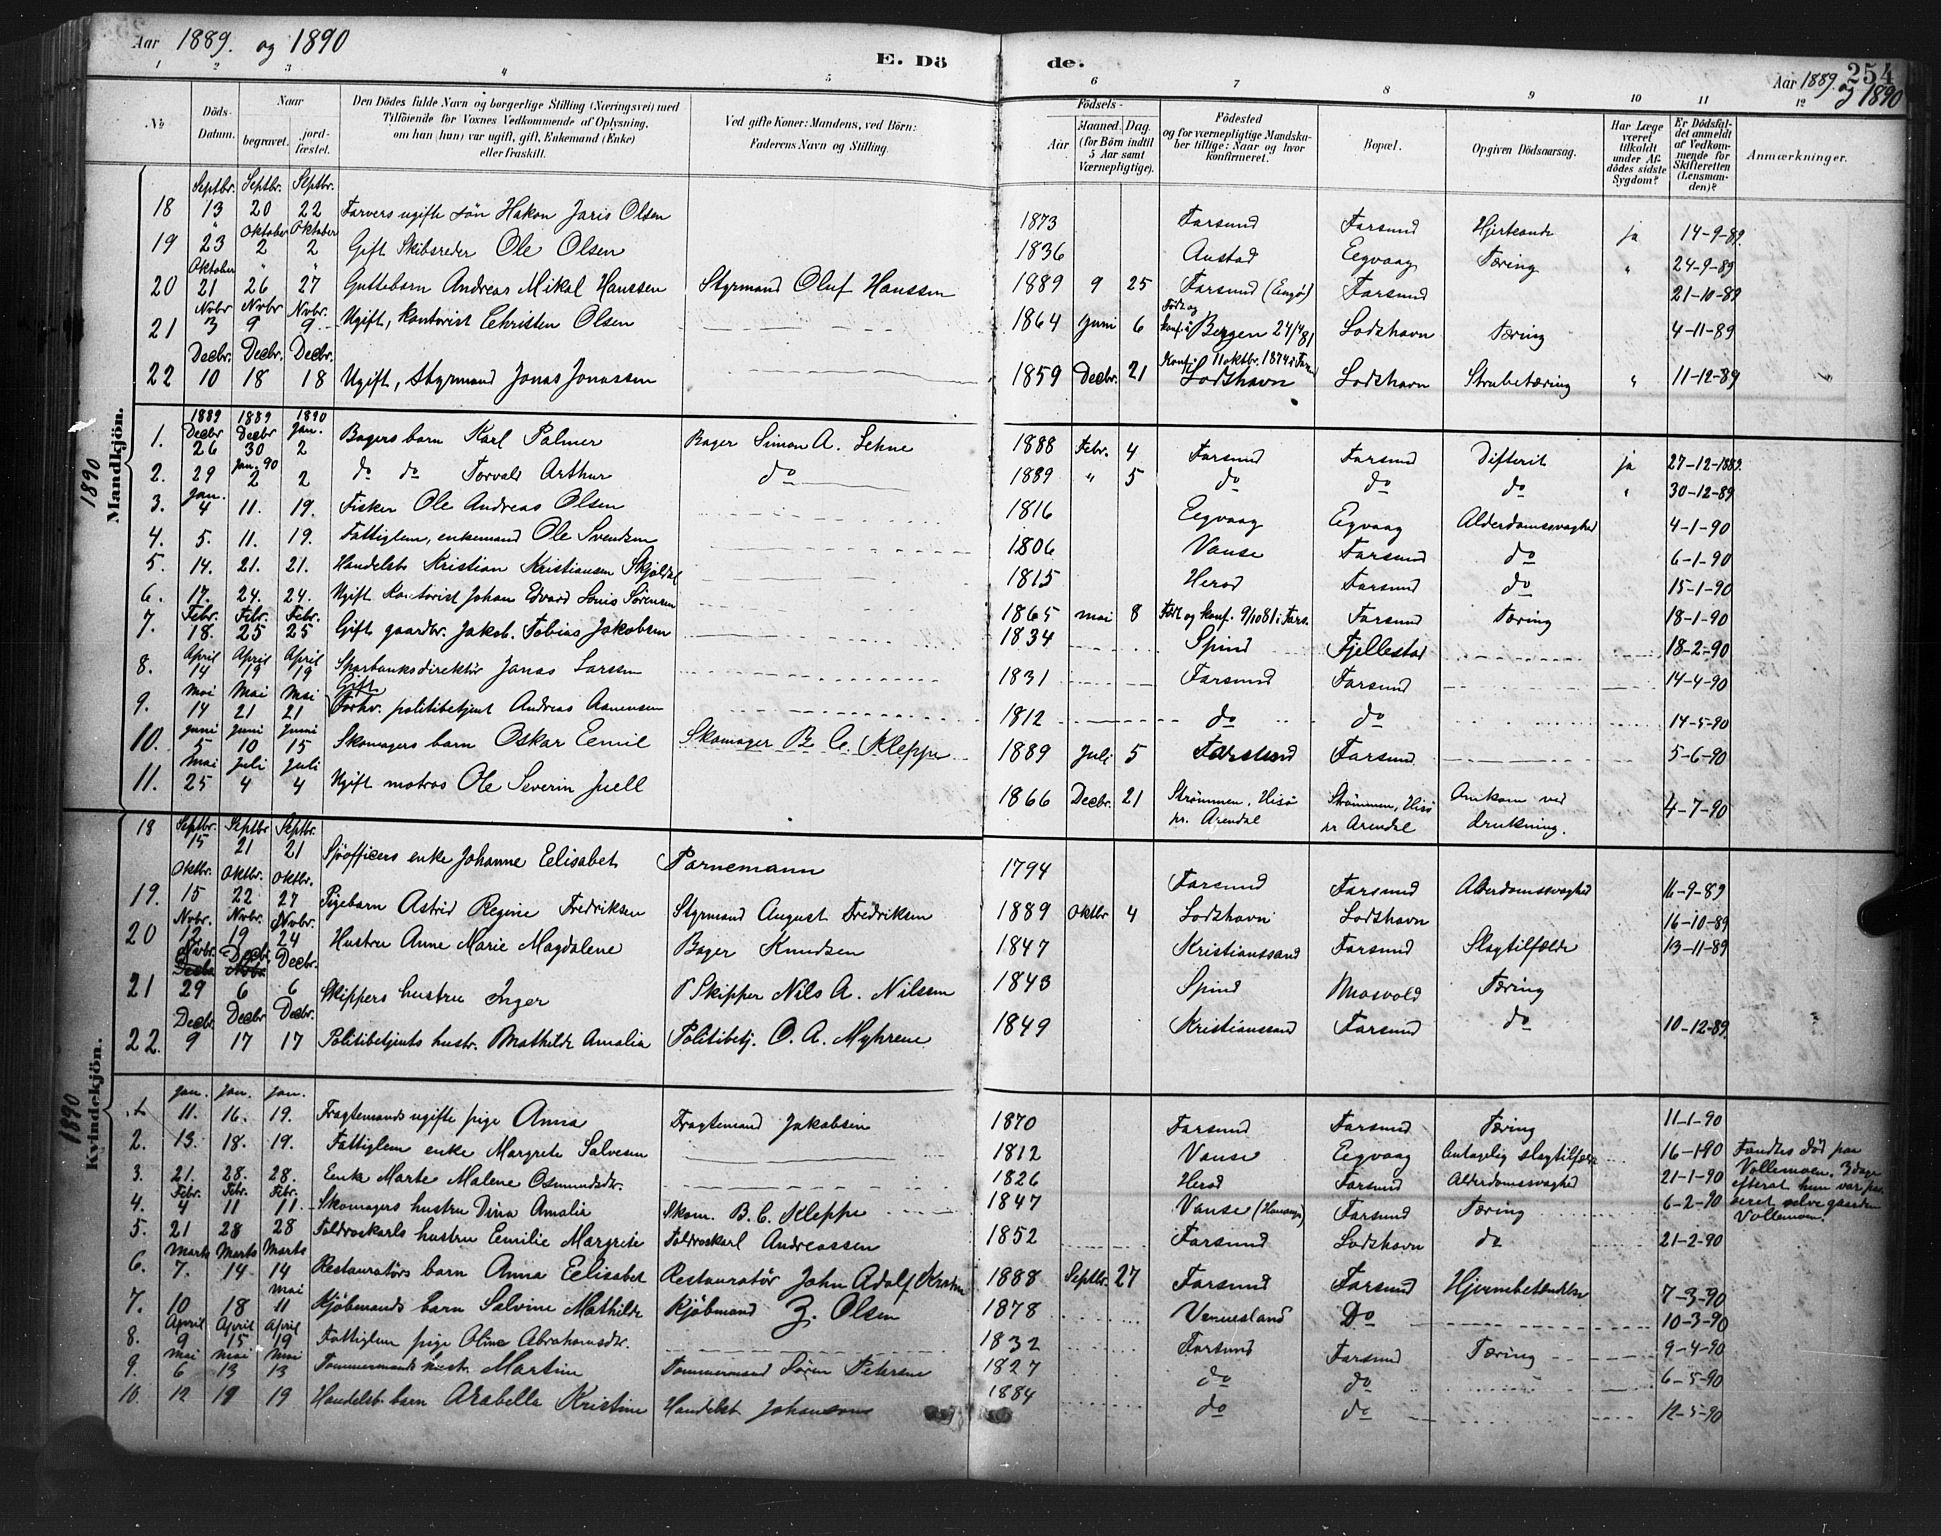 Aar 1889. og 1890
E. Döde.
Aar 1889. og 1890
254
1 2 3 4 5 6 7 8 9 10 11 12
No
Döds-Datum.
Naar begravet. jordfæstet.
Den Dödes fulde Navn og borgerlige Stilling (Næringsvei) med Tilföiende for Voxnes Vedkommende af Oplysning, om han (hun) var ugift, gift, Enkemand (Enke) eller fraskilt.
Ved gifte Koner: Mandens, ved Börn: Faderens Navn og Stilling.
Födsels-
Aar
Maaned. Dag.
(for Börn indtil 5 Aar samt Værnepligtige).
Födested og for værnepligtige Mandskaber tillige: Naar og hvor konfirmeret.
Bopæl.
Opgiven Dödsaarsag.
Har Læge været tilkaldt under Afdödes sidste Sygdom?
Er Dödsfaldet anmeldt af Vedkommende for Skifteretten (Lensmanden)?
Anmærkninger.
Septbr. Septbr. Septbr.
18 13 20 22 Farvers ugifte søn Hakon Jaris Olsen 1873 Farsund Farsund ja 14-9-89.
" Oktober Oktober
19 23 2 2 Gift Skibsreder Ole Olsen 1836 Austad Eegvaag Tæring " 24-9-89
Oktober " "
20 21 26 27 Guttebarn Andreas Mikal Hanssen Styrmand Oluf Hanssen 1889 9 25 Farsund Farsund 21-10-89
Novbr Novbr Novbr.
21 3 9 9 Ugift, kontorist Christen Olsen 1864 Juni 6 Født og konf. i Bergen 24/4 81 Lodshavn Tæring 4-11-89
Decbr. Decbr. Decbr.
22 10 18 18 Ugift, Styrmand Jonas Jonassen 1859 Decbr. 21 Konf. 11 oktbr. 1874 i Lodshavn Lodshavn Strubetæring " 11-12-89
1890 Mandkjön.
1889 1889 1890
Decbr Decbr Jan.
1. 26 30 2 Bagers barn Karl Palmer Bager Simon A. Lehne 1888 Febr. 4 Farsund Farsund Difterit ja 27-12-1889.
Jan. 90
2. 29 2 2 do do Torvald Arthur do 1889 " 5 do do do " 30-12-89.
Jan.
3. 4 11. 19. Fisker Ole Andreas Olsen 1816 Eegvaag Eegvaag Alderdomssvaghed 4-1-90
4. 5. 11. 19. Fattiglem, enkemand Ole Svendsen 1806 Vanse Farsund do 6-1-90
5. 14. 21. 21. Handelsb Kristian Kristiansen Skjoldal 1815 Herad Farsund do 15-1-90
6. 17. 24. 24. Ugift Kontorist Johan Edvard Louis Sørensen 1865 mai 8 Født og konf. 9/10 81 i Fars. Farsund Tæring 18-1-90
Febr. Febr. Febr.
7. 18. 25 25 Gift gaardbr. Jakob Tobias Jakobsen 1834 Spind Fjellestad 18-2-90
April April April
8. 14 19 19 Sparbanksdirektør Jonas Larssen 1831 Farsund Farsund 14-4-90
Mai Mai Mai
9. 14 21 21 Gift Forhv. politibetjent Andreas Aanensen 1812 do do 14-5-90
Juni Juni Juni
10. 5 10 15 Skomagers barn Oskar Eemil Skomager B. C. Kleppe 1889 Juli 5 Farsund Farsund 5-6-90
Mai Juli Juli
11. 25 4 4 Ugift matros Ole Severin Juell 1866 Decbr. 21 Strømmen, Hisø pr. Arendal Strømmen, Hisø pr Arendal Omkom ved drukning. 4-7-90
Septbr. Septbr Septbr.
18 15 21 21 Sjøofficers enke Johanne Eelisabet Parnemann 1794 Farsund Farsund Alderdomssvaghed 16-9-89
Oktbr. Oktbr. Oktbr.
19. 15 22 27 Pigebarn Astrid Regine Fredriksen Styrmand August Fredriksen 1889 Oktbr 4 Lodshavn Lodshavn 16-10-89
Novbr. Novbr. Novbr.
20 12 19 24 Hustru Anne Marie Magdalene Bager Knudsen 1847 Kristianssand Farsund Slagtilfælde 13-11-89
Novbr. Decbr Decbr.
21 29 6 6 Skippers hustru Inger Skipper Nils A. Nilssen 1843 Spind Mosvold Tæring
Decbr. Decbr Decbr.
22. 9 17 17 Politibetjents hustr. Mathilde Amalia Politibetj. O. A. Myhrene 1849 Kristianssand Farsund do 10-12-89.
1890 Kvindekjön.
Jan. Jan. Jan.
1. 11. 16. 19. Fragtemands ugifte pige Anna Fragtemand Jakobsen 1870 Farsund Farsund Tæring 11-1-90
2. 13. 18. 19. Fattiglem enke Margrete Salvesen 1812 Vanse Eegvaag Antagelig slagtilfælde 16-1-90 Fandtes død paa Vollemoen. 3 dage efterat hun var selve gaarden Vollemoen.
3. 21. 28. 28. Enke Marte Malene Osmundsdr. 1826 Herad Farsund Alderdomssvaghed 21-1-90
Febr. Febr. Febr.
4. 4 11 11. Skomagers hustru Dina Amalie Skom. B. C. Kleppe 1847 Vanse Farsund Tæring 6-2-90
5. 21 28 28 Toldroskarls hustru Eemilie Margrete Toldroskarl Andreassen 1852 Farsund Lodshavn do 21-2-90
Marts Marts Marts
6. 7. 14 14 Restauratørs barn Anna Eelisabet Restauratør John Adolf 1888 Septbr. 27 Farsund Farsund Hjernebetændelse 7-3-90
Mai
7. 10 18 11 Kjøbmands barn Salvine Mathilde Kjøbmand Z. Olsen 1878 Vennesland Do 10-3-90
April April April
8. 9 15 19 Fattiglem pige Oline Abrahamsdr. 1832 Farsund Farsund Tæring 9-4-90
Mai Mai Mai
9. 6 13 13 Tømmermands hustr. Martine Tømmermand Søren Petersen 1827 do do 6-5-90
10. 12 19 19 Handelsb. barn Arabella Kristine Handelsb. Johansen 1884 do do 12-5-90